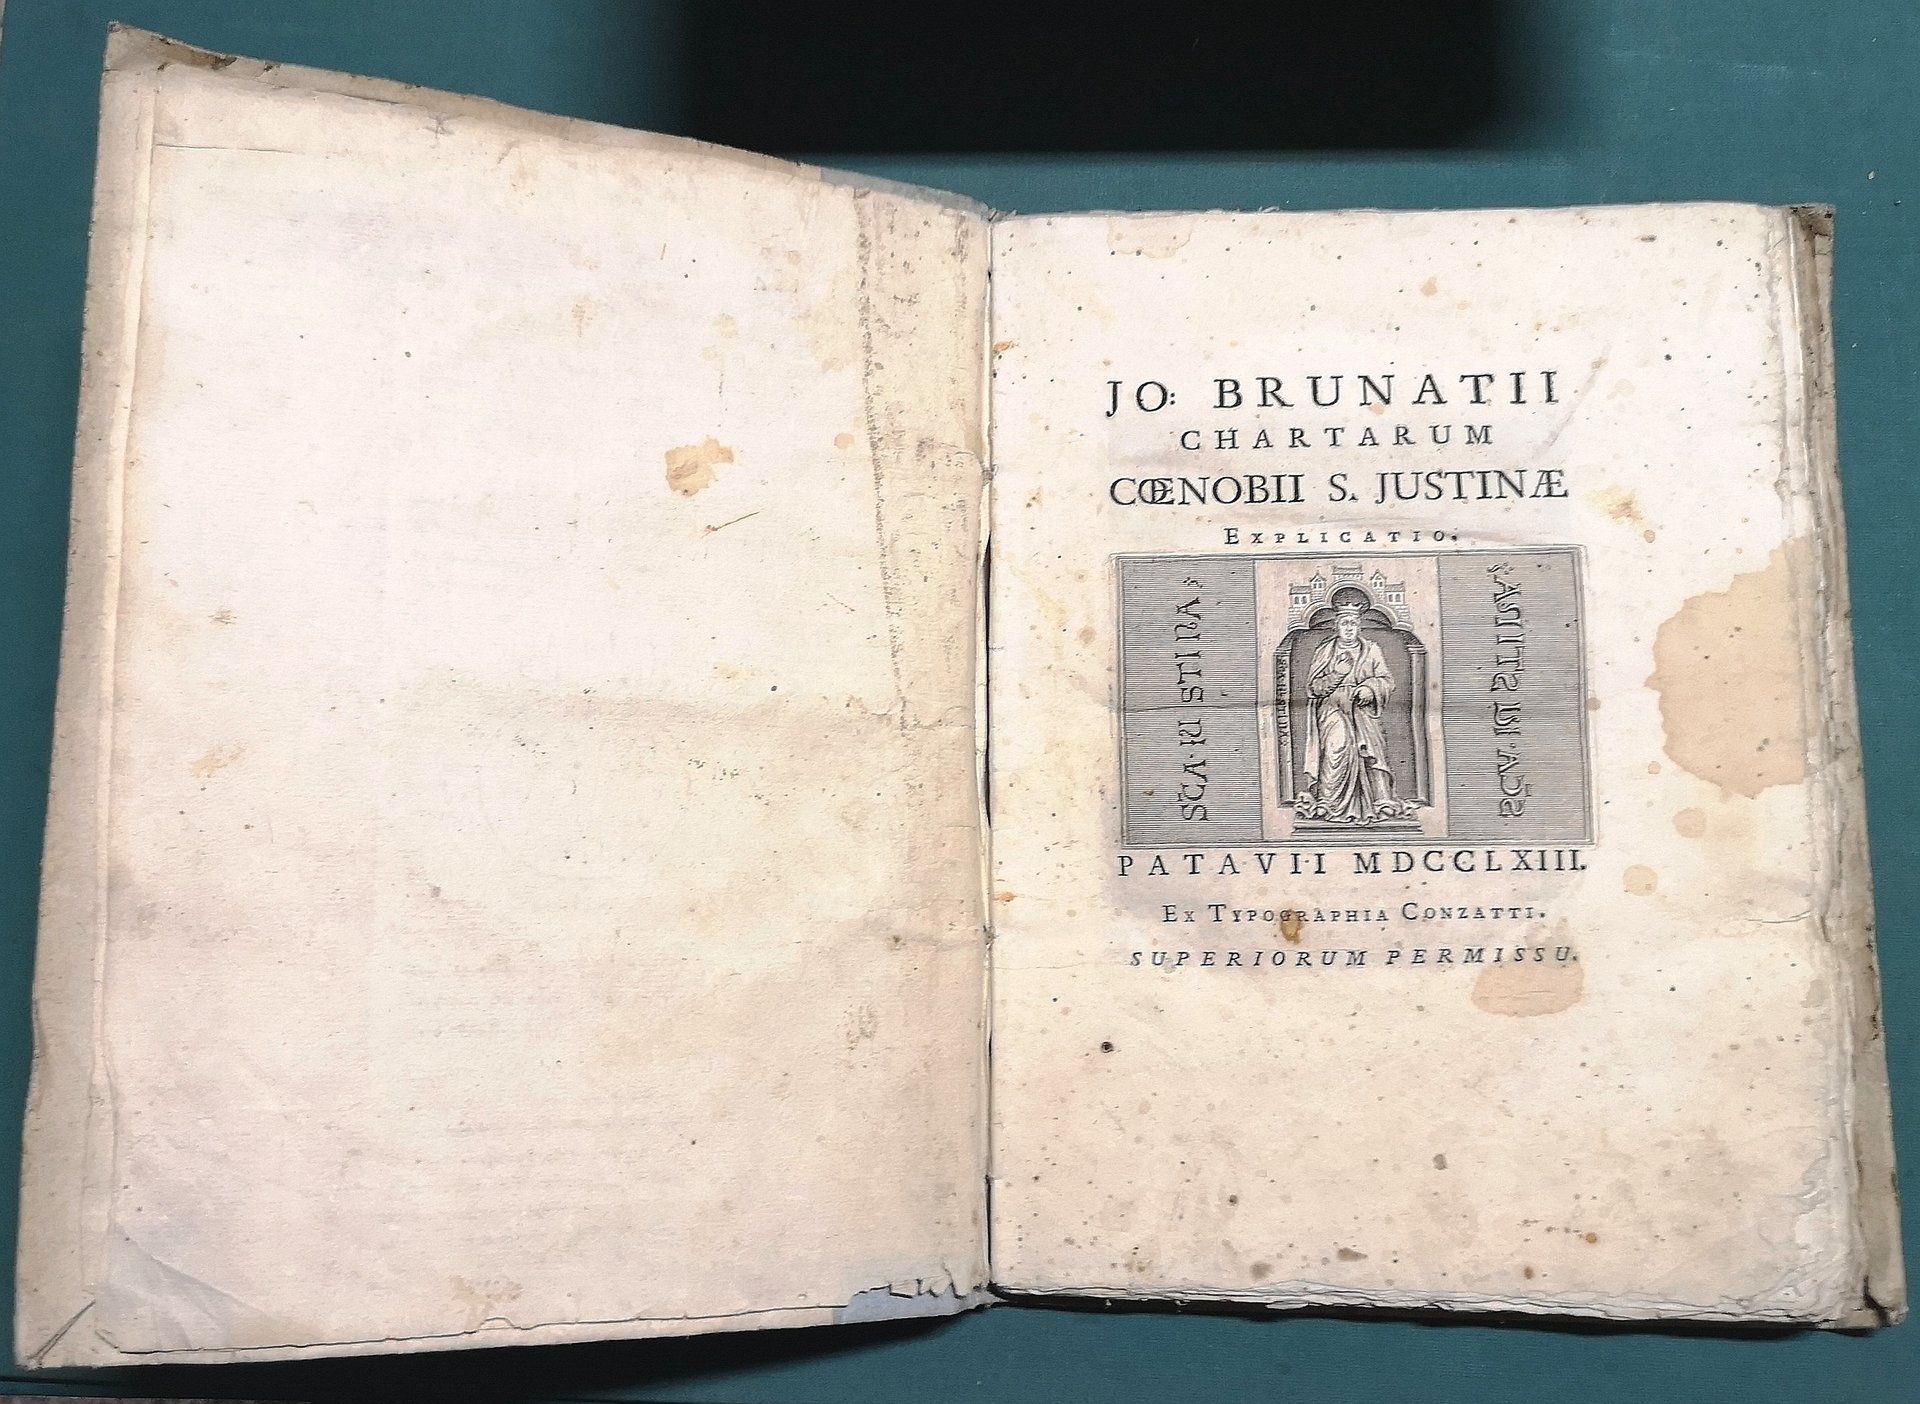 JO: BRUNATII
CHARTARUM
CŒNOBII S. JUSTINÆ
EXPLICATIO.
SCA·IUSTINA
SCA·IUSTINA
PATAVII MDCCLXIII.
EX TYPOGRAPHIA CONZATTI.
SUPERIORUM PERMISSU.